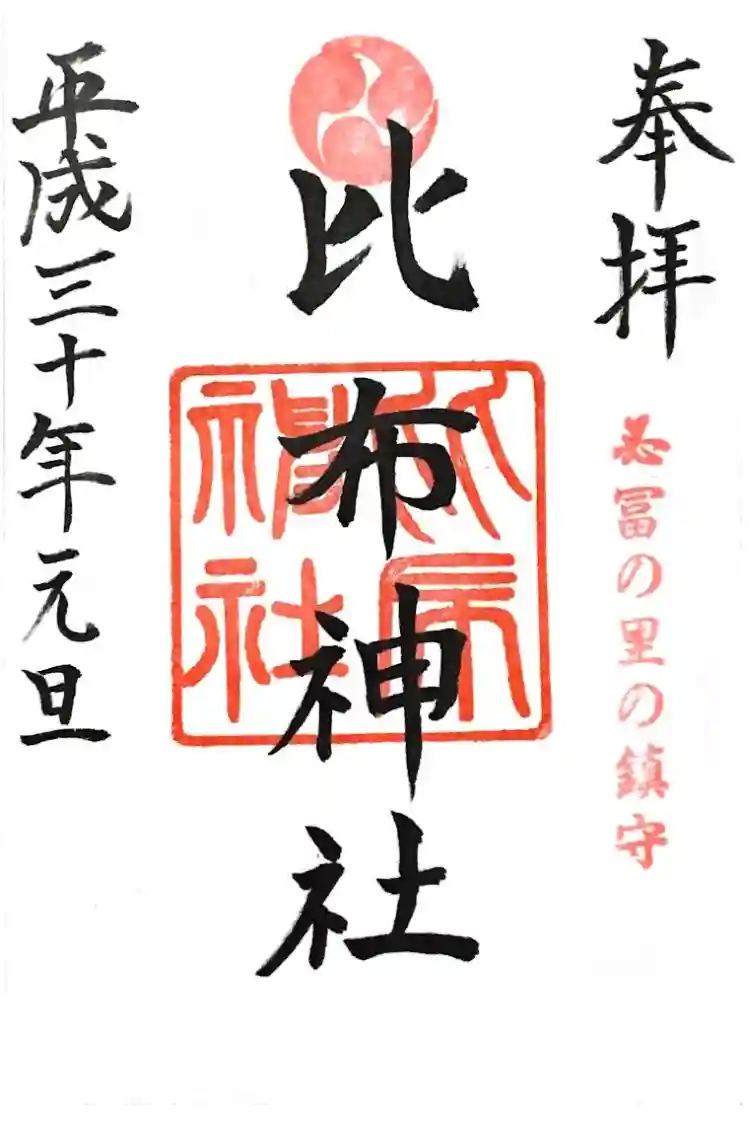 奉拝
必冨の里の鎮守
比布神社
比布
神社
平成三十年元旦